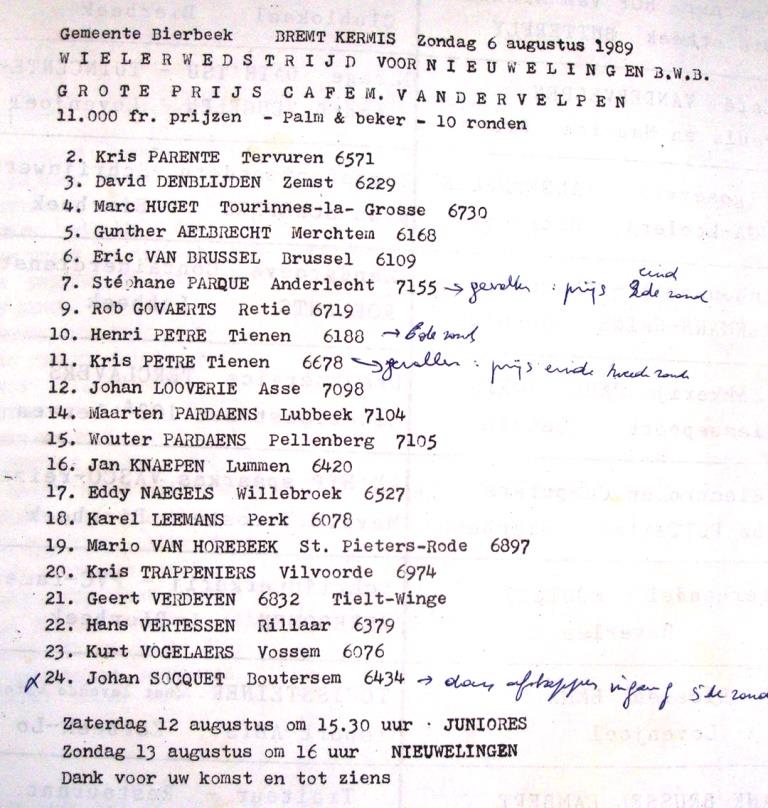 Gemeente Bierbeek BREMT KERMIS Zondag 6 augustus 1989
WIELERWEDSTRIJD VOOR NIEUWELINGEN B.W.B.
GROTE PRIJS CAFE M. VANDERVELPEN
11.000 fr. prijzen - Palm & beker - 10 ronden
2. Kris PARENTE Tervuren 6571
3. David DENBLIJDEN Zemst 6229
4. Marc HUGET Tourinnes-la- Grosse 6730
5. Gunther AELBRECHT Merchtem 6168
6. Eric VAN BRUSSEL Brussel 6109
7. Stéphane PARQUE Anderlecht 7155 → gevallen : prijs eind 2de rond
9. Rob GOVAERTS Retie 6719
10. Henri PETRE Tienen 6188 → 6de rond
11. Kris PETRE Tienen 6678 → gevallen : prijs einde tweede ronde
12. Johan LOOVERIE Asse 7098
14. Maarten PARDAENS Lubbeek 7104
15. Wouter PARDAENS Pellenberg 7105
16. Jan KNAEPEN Lummen 6420
17. Eddy NAEGELS Willebroek 6527
18. Karel LEEMANS Perk 6078
19. Mario VAN HOREBEEK St. Pieters-Rode 6897
20. Kris TRAPPENIERS Vilvoorde 6974
21. Geert VERDEYEN 6832 Tielt-Winge
22. Hans VERTESSEN Rillaar 6379
23. Kurt VOGELAERS Vossem 6076
x 24. Johan SOCQUET Boutersem 6434 → ingang 5de rond
Zaterdag 12 augustus om 15.30 uur - JUNIORES
Zondag 13 augustus om 16 uur NIEUWELINGEN
Dank voor uw komst en tot ziens